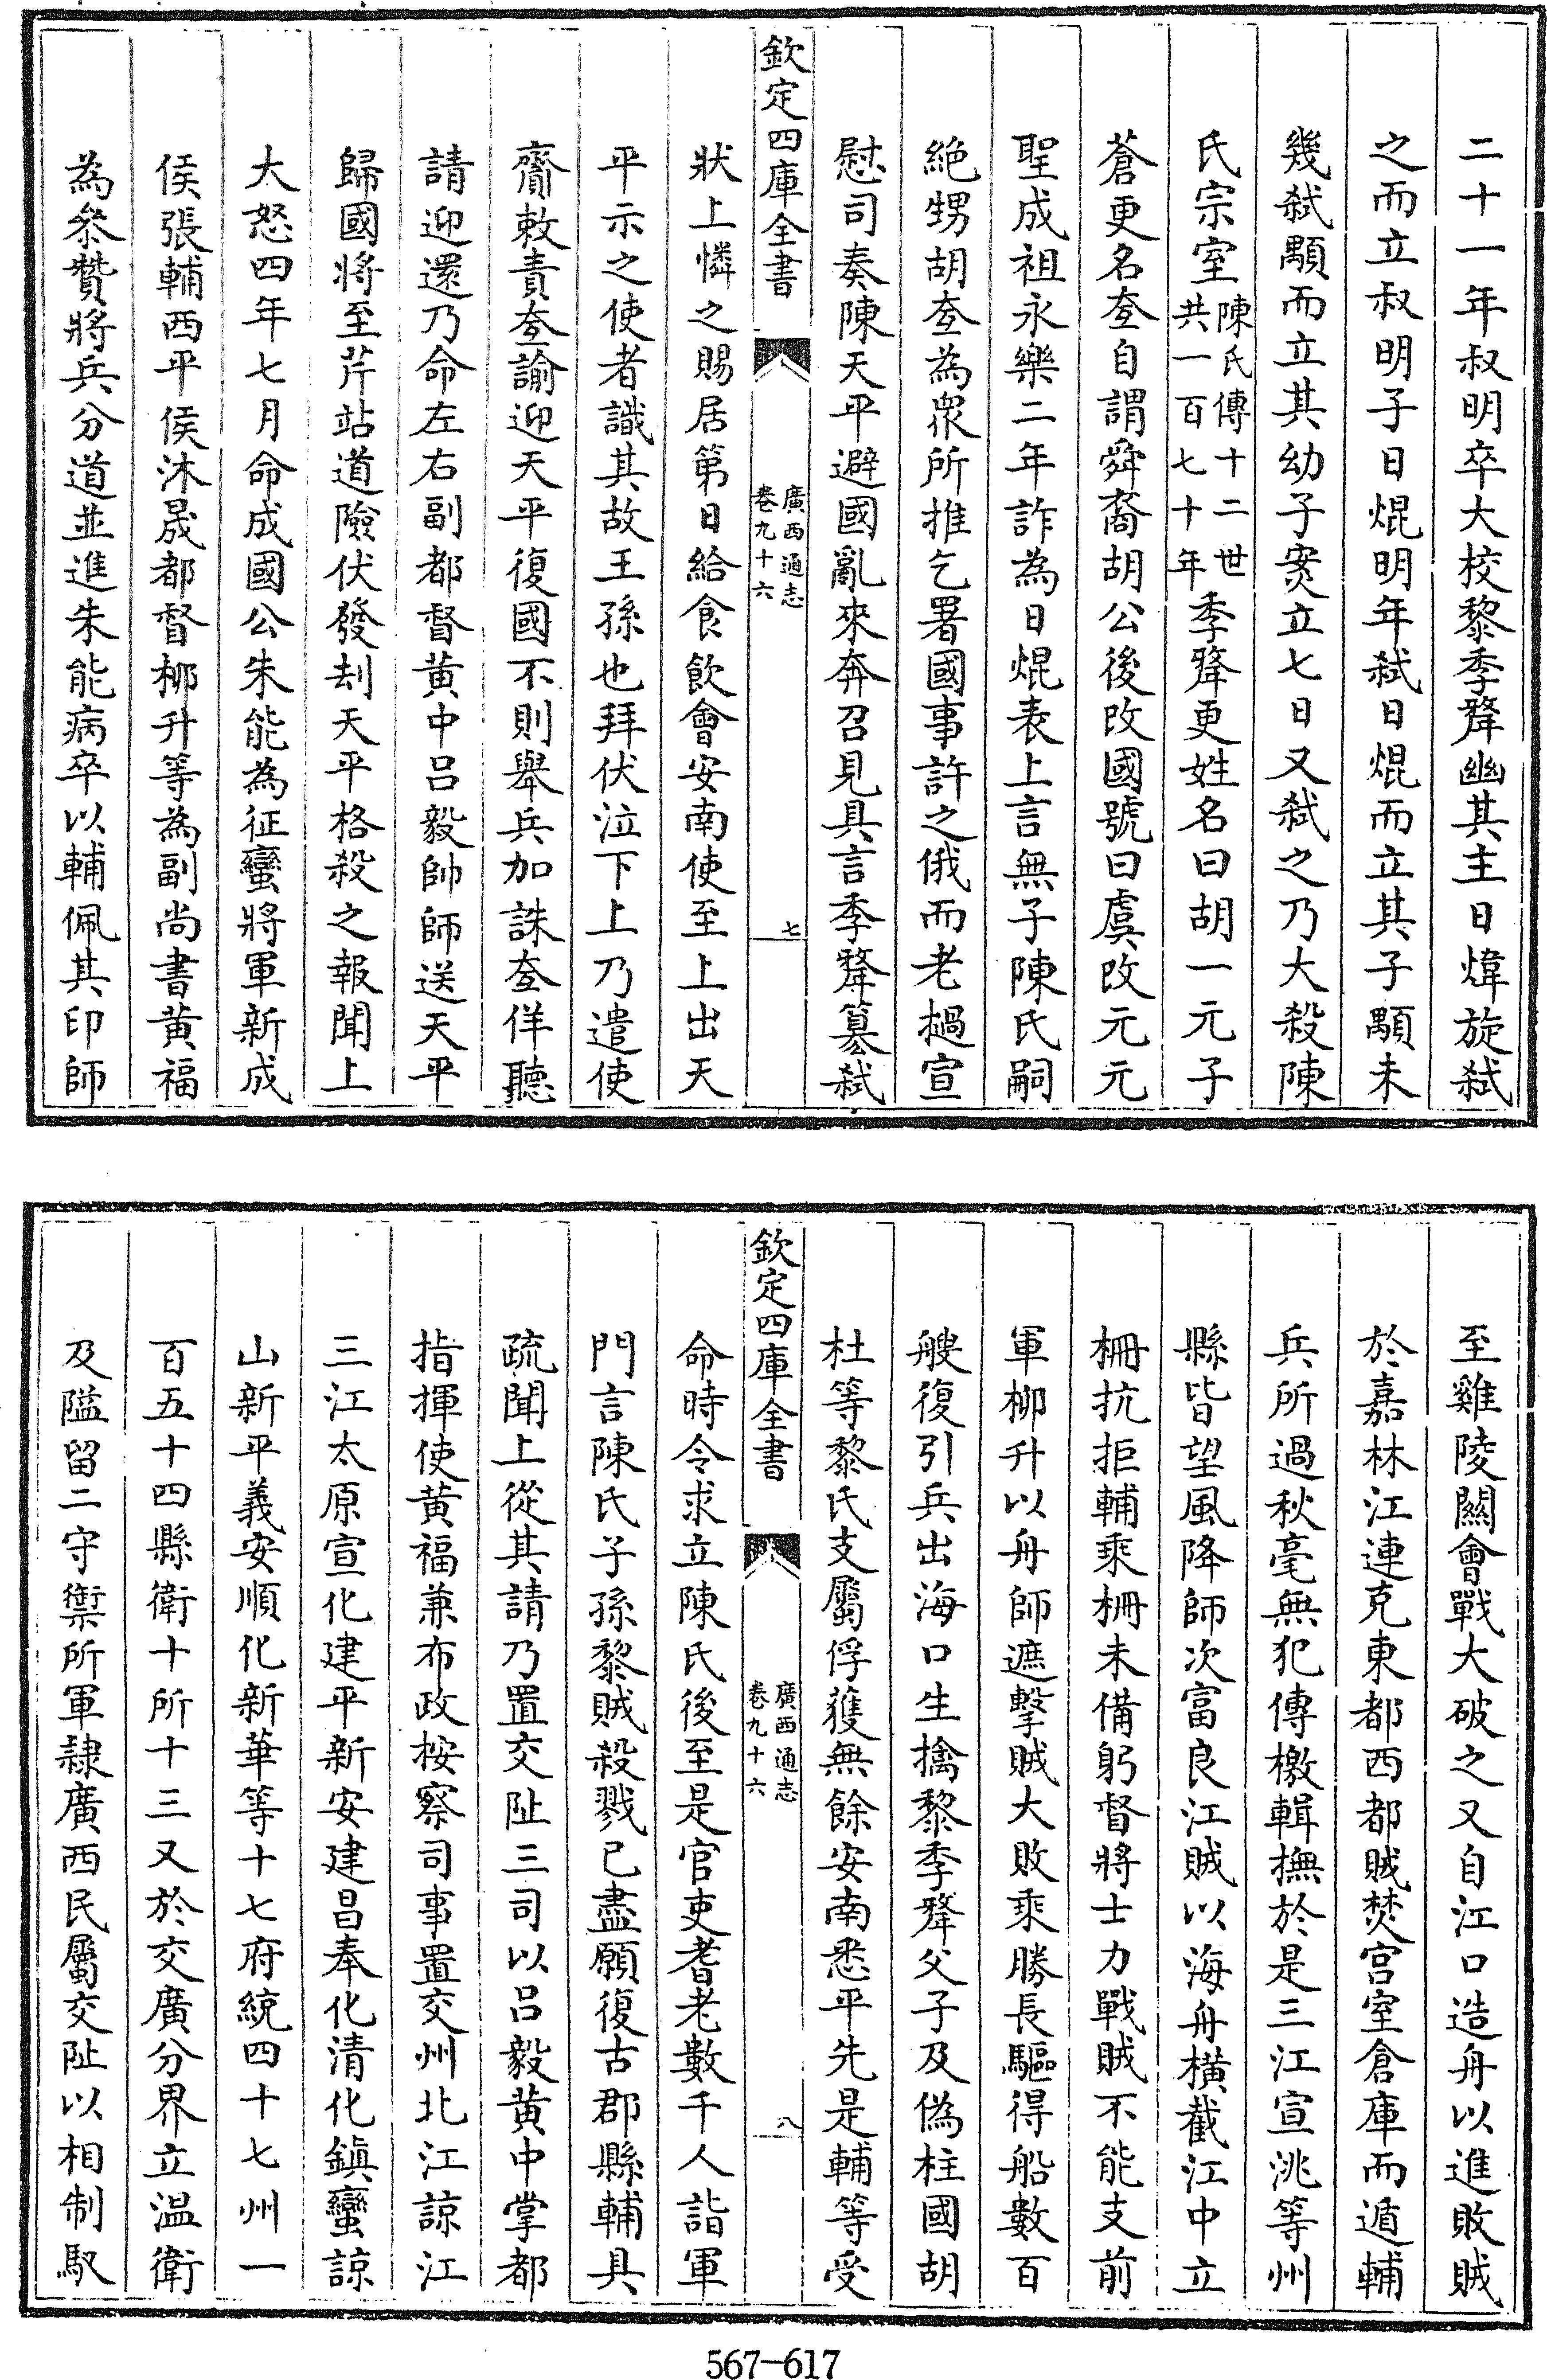 二十一年叔明卒大校黎季犛幽其主日煒旋弑
之而立叔明子日焜明年弑日焜而立其子顒未
幾弑顒而立其幼子䆠立七日又弑之乃大殺陳
氏宗室陳氏傳十二世共一百七十年季犛更姓名曰胡一元子
蒼更名㚞自謂舜裔胡公後改國號曰虞改元元
聖成祖永樂二年詐為日焜表上言無子陳氏嗣
絶甥胡㚞為衆所推乞署國事許之俄而老撾宣
慰司奏陳天平避國亂來奔召見具言季犛簒弑
欽定四庫全書
廣西通志
卷九十六
七
狀上憐之賜居第日給食飲會安南使至上出天
平示之使者識其故王孫也拜伏泣下上乃遣使
齎敕責㚞諭迎天平復國不則舉兵加誅㚞佯聽
請迎還乃命左右副都督黄中吕毅帥師送天平
歸國將至芹站道險伏發刦天平格殺之報聞上
大怒四年七月命成國公朱能為征蠻將軍新成
侯張輔西平侯沐晟都督栁升等為副尚書黄福
為叅贊將兵分道並進朱能病卒以輔佩其印師
至雞陵關會戰大破之又自江口造舟以進敗賊
於嘉林江連克東都西都賊焚宫室倉庫而遁輔
兵所過秋毫無犯傳檄輯撫於是三江宣洮等州
縣皆望風降師次富良江賊以海舟横截江中立
柵抗拒輔乘柵未備躬督將士力戰賊不能支前
軍栁升以舟師遮擊賊大敗乘勝長驅得船數百
艘復引兵出海口生擒黎季犛父子及偽柱國胡
杜等黎氏支屬俘獲無餘安南悉平先是輔等受
欽定四庫全書
廣西通志
卷九十六
八
命時令求立陳氏後至是官吏耆老數千人詣軍
門言陳氏子孫黎賊殺戮已盡願復古郡縣輔具
疏聞上從其請乃置交阯三司以吕毅黄中掌都
指揮使黄福兼布政按察司事置交州北江諒江
三江太原宣化建平新安建昌奉化清化鎮蠻諒
山新平義安順化新華等十七府統四十七州一
百五十四縣衛十所十三又於交廣分界立温衛
及隘留二守禦所軍隷廣西民屬交阯以相制馭
567-617